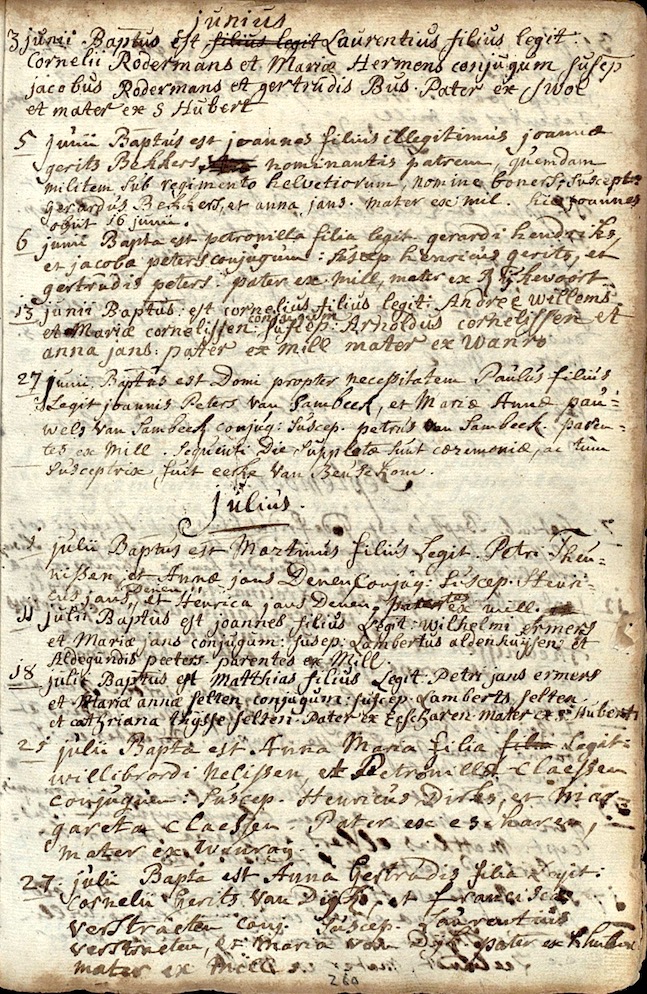 junius
3 junii Baptus est filius legit Laurentius filius legit.
Cornelii Rodermans et Mariæ Hermens conjugum susep
jacobus Rodermans et gertrudis Bus. Pater ex
et mater ex S Hubert
5 junii Baptus est joannes filius illegitimus joannæ
gerits Bekkers nominantis patrem, quemdam
militem sub regimento helvetiorum, nomine boners, suscept:
gerardus Bekkers, et anna jans. mater ex mil. hic joannes
obiit 16 junii.
6 junii Bapta est petronilla filia legit gerardi hendriks,
et jacoba peters conjugum: suscep henricus gerits, et
gertrudis peters. pater ex mill, mater ex
13 junii Baptus: est cornelius filius legit: Andreæ willems
conjugum
et Mariæ cornelissen: suscep: Arnoldus cornelissen et
anna jans: patter ex Mill mater ex wanro
27 junii Baptus est Domi propter necessitatem Paulus filius
Legit joannis Peters Van Sambeek, et Mariæ Annæ pau-
wels Van Sambeek conjug: suscep. petrus van Sambeek paren-
tes ex Mill. sequenti Die suppletæ sunt cæremoniæ, ac tum
susceptrix fuit eeske Van Beusekom.
julius.
julii Baptus est Martinus filius Legit. Petri Theu-
nissen, et Annæ jans Denen Conjug: suscep. Henri-
Denen
cus jans, et Henrica jans Denen. ex mill.
11 julii Baptus est joannes filius Legit: wilhelmi ermers
et Mariæ jans conjugum: susep: Lambertus aldenhuijsen: et
Aldegundis peeters. parentes ex Mill
18 julii Baptus est Matthias filius Legit. Petri jans ermers
et Mariæ annæ selten conjugum: suscep. Lamberts selten
et cathriana thysse selten. Pater ex Escharen mater ex s: Huberti
25 julii Baptæ est Anna Maria filia filia Legit=
willibrordi Nelissen, et Petronilla Claessen
conjugum: Suscep. Henricus Dirks, et Mar-
gareta Claessen. Pater ex escharen,
mater ex wanray.
27 julii Bapta est Anna Gertrudis filia Legit:
cornelii Gerits Van Dijk, et francisca
verstraeten conj. suscep. Laurentius
verstraeten, et Maria van Dijk pater ex
mater ex Mill
260